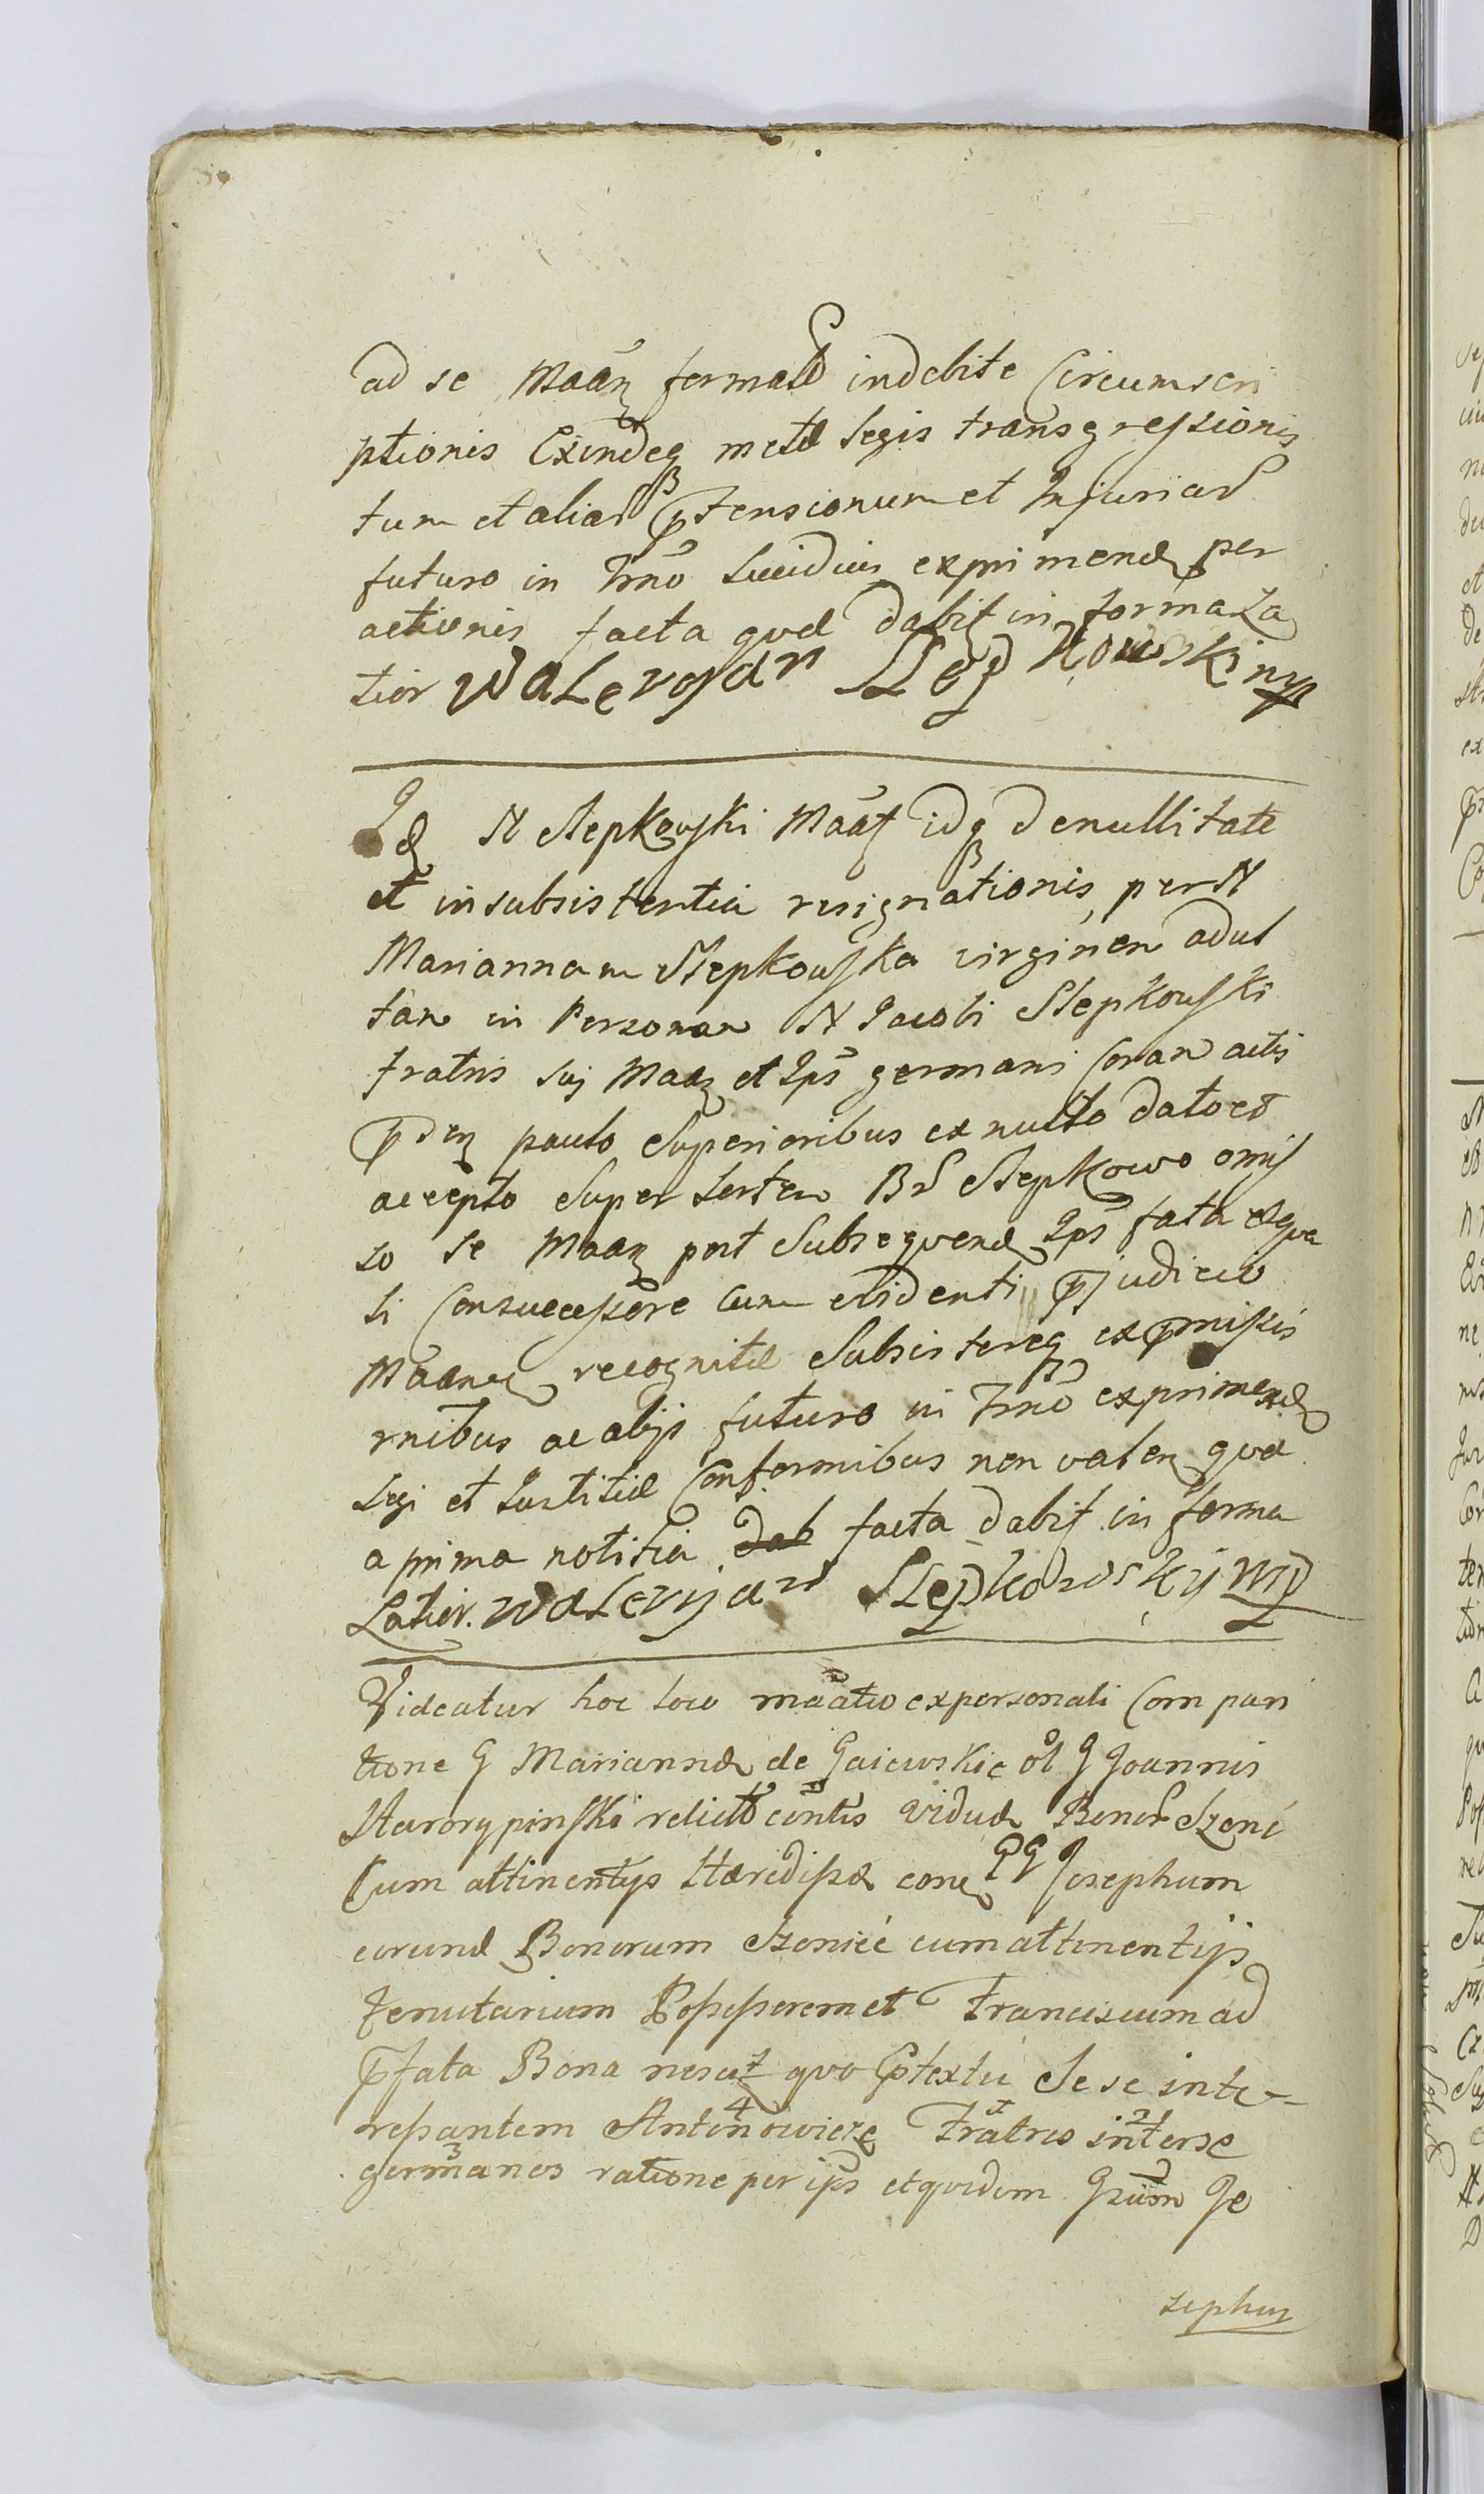 ad se Maan̄ formatæ indebite Circumscri
ptionis Exindeq metæ Legis transgressionis
tum et aliar p̄tensionum et Injuriar
futuro in Trno Lucidius exprimend per
actionis facta qvæ dabit in forma La
tior Waleryan Slepkowski mp
Id N Slepkowski Maat idq de nullitate
et insubsistentia resignationis per N
Mariannam Slepkowska virginem adul
tam in Personam N Jacobi Slepkowski
fratris sui Maan et Ips germani Coram actis
p̄den paulo Superioribus ex nullo dato et
accepto Super Sortem Br Slepkowo omis
so se Maan post Subseqvend Ips fata æqva
li Consuccessore cum evidenti p̄judicio
Maanis recognitæ Subsistereq ex p̄missis
rnibus ac alijs futuro in Trno exprimend
Legi et Justitiæ Conformibus non valen qvæ
a prima notitia dab facta dabit in forma
Latior. Waleryjan Slepkowskij mp
Videatur hoc loco maatio ex personali Compari
tione G Mariannæ de Gaiewskie ol G Joannis
Starorypinski relictæ cōntis Viduæ Bonor Szenic
Cum attinentys Hæredissæ conq GG Josephum
eorund Bonorum Szenice cum attinentijs
Tenutarium Possessorem et Franciscum ad
p̄fata Bona nescit qvo p̄textu Se se inte-
ressantem Antonowicze Fratres inter se
germanos ratione per ips et qvidem Gsum Jo
sephum